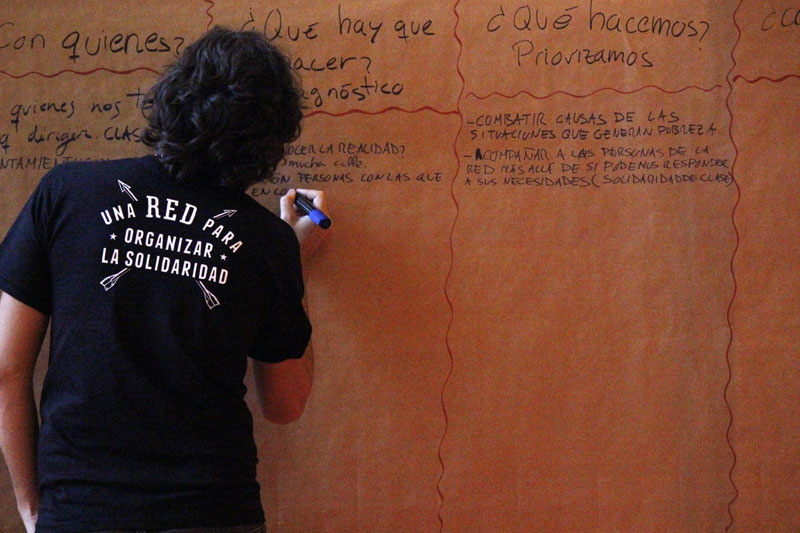 Con quienes?
quienes nos
q dirigen. CLAS
NTAMIENTO
¿Qué hay que
hacer?
agnóstico
OCER LA REALIDAD?
mucha calle.
EN PERSONAS CON LAS QUE
EN CO
¿Qué hacemos?
Priorizamos
- COMBATIR CAUSAS DE LAS
SITUACIONES QUE GENERAN POBREZA
- ACOMPAÑAR A LAS PERSONAS DE LA
RED MÁS ALLÁ DE SI PODEMOS RESPONDER
A SUS NECESIDADES (SOLIDARIDAD DE CLASE)
UNA RED PARA
ORGANIZAR
LA SOLIDARIDAD